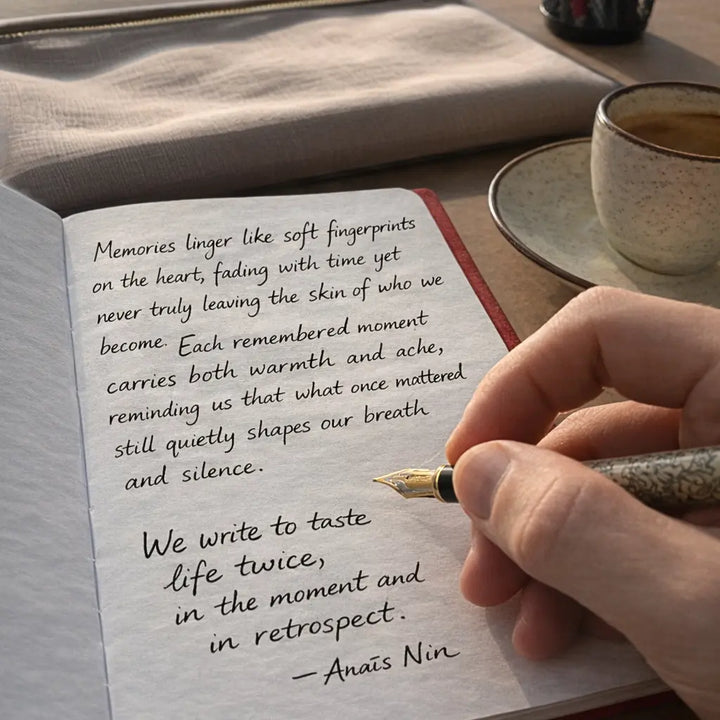 Memories linger like soft fingerprints
on the heart, fading with time yet
never truly leaving the skin of who we
become. Each remembered moment
carries both warmth and ache,
reminding us that what once mattered
still quietly shapes our breath
and silence.
We write to taste
life twice,
in the moment and
in retrospect.
— Anaïs Nin